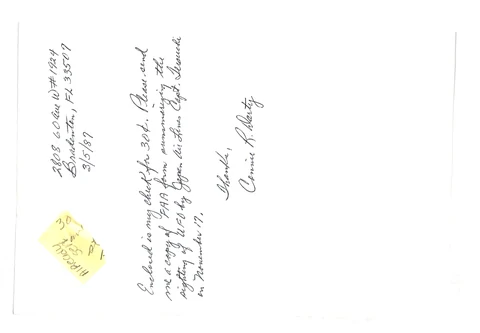 2803 60 Ave W #1924
Bradenton, FL 33507
3/5/87
Enclosed is my check for 30¢. Please send
me a copy of FAA form summarizing the
sighting of UFO by Japan Air Lines Capt. Terauchi
on November 17.
Thanks,
Connie R.
Already